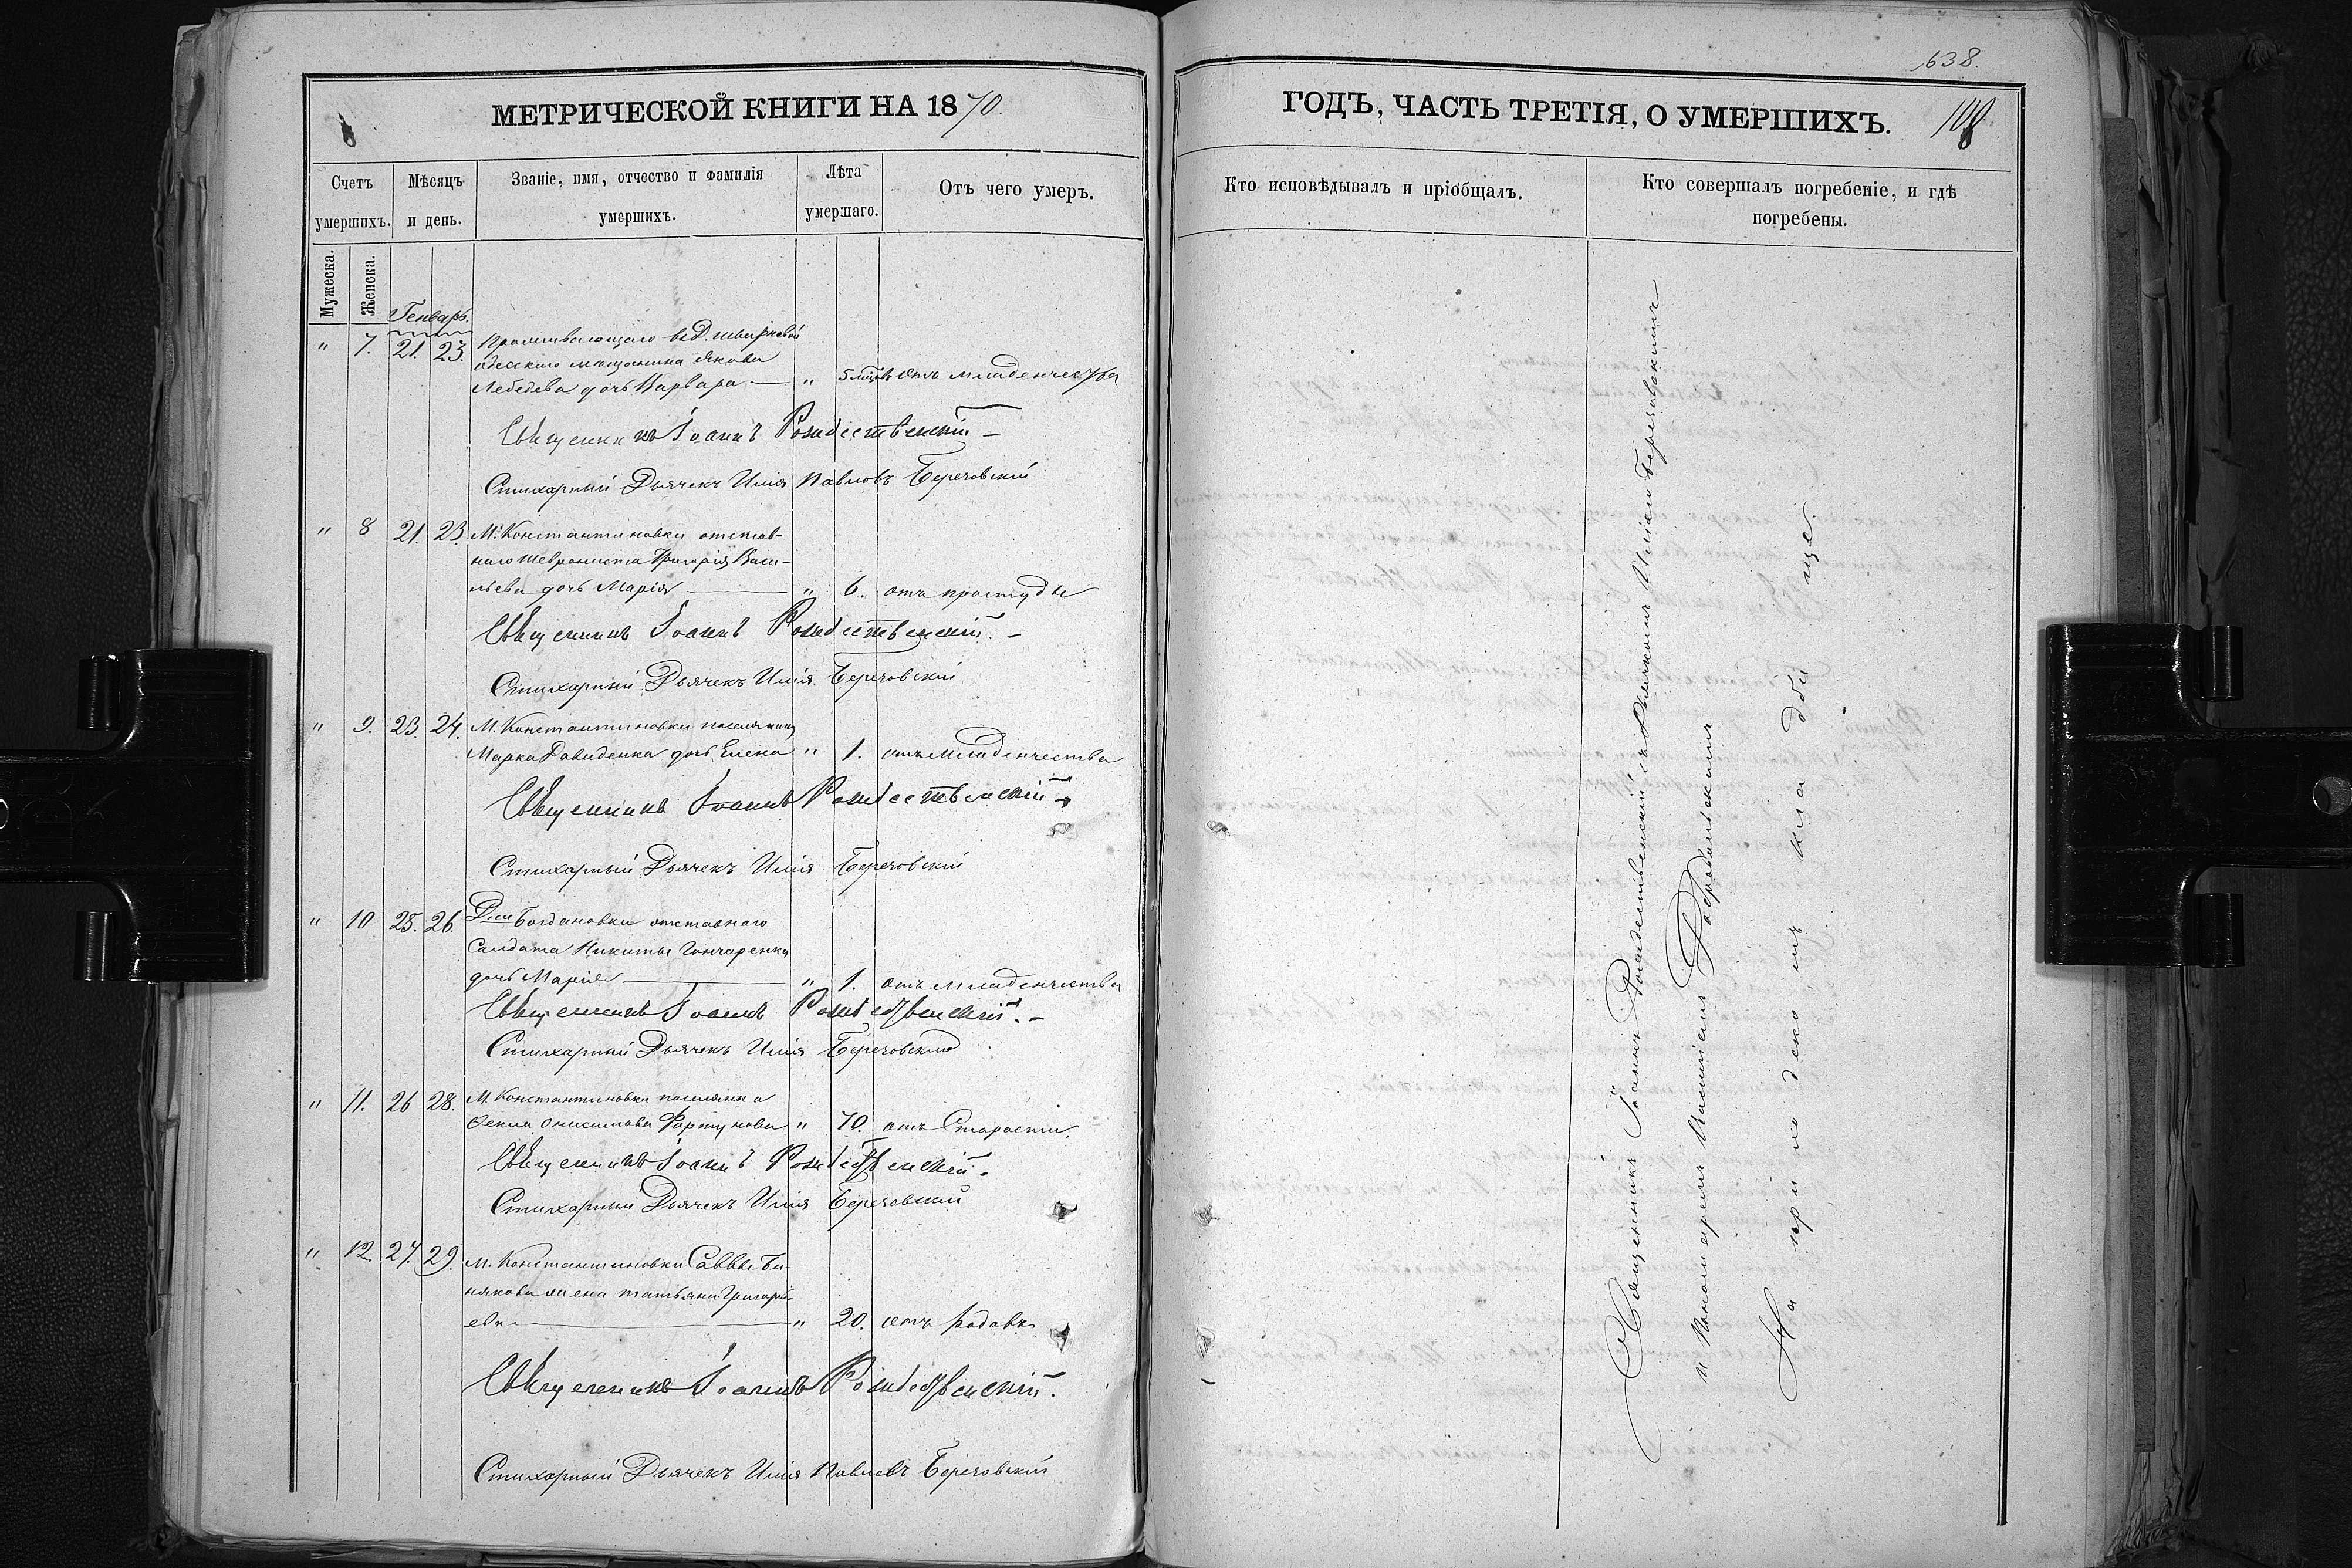 МЕТРИЧЕСКОЙ КНИГИ НА 1870.
Счетъ умершихъ.
Мѣсяцъ и день.
Званіе, имя, отчество и фамилія умершихъ.
Лѣта умершаго.
Отъ чего умеръ.
Мужеска.
Женска.
Генварь.
" 7. 21. 23. Проживающаго въ Д.
одесского мѣщанина Якова
Лебедева дочь Варвара — " 5 мѣсяц. отъ младенчества
Священникъ Іоаннъ Рождественскій –
Стихарный Дьячекъ Илія Павловъ Березовскій
" 8 21. 23. М. Константиновки отстав-
наго шеврониста Григорія Васи-
льева дочь Марія — " 6. отъ простуды
Священникъ Іоаннъ Рождественскій. –
Стихарный Дьячекъ Илія Березовскій
" 9. 23. 24. М. Константиновки поселянина
Марка Давиденка дочь Елена " 1. отъ младенчества
Священникъ Іоаннъ Рождественскій –
Стихарный Дьячекъ Илія Березовскій
" 10 25. 26. Д-ни Богдановки отставного
Салдата Никиты Гончаренка
дочь Марія — " 1. отъ младенчества
Священникъ Іоаннъ Рождественскій. –
Стихарный Дьячекъ Илія Березовскій
" 11. 26 28. М. Константиновки поселянка
Фекла Онисимова Фортунова " 70. отъ Старости.
Священникъ Іоаннъ Рождественскій.
Стихарный Дьячекъ Илія Березовскій
" 12. 27. 29. М. Константиновки Саввы Би-
някова жена татьяна Григорі-
ева — " 20. отъ родовъ
Священникъ Іоаннъ Рождественскій.
Стихарный Дьячекъ Илія Павловъ Березовскій
638.
ГОДЪ, ЧАСТЬ ТРЕТІЯ, О УМЕРШИХЪ.
Кто исповѣдывалъ и пріобщалъ.
Кто совершалъ погребеніе, и гдѣ погребены.
Священникъ Іоаннъ Рождественскій съ Дьячкомъ Иліею Березовскимъ
и Пономаремъ
На приходскомъ кладбище.